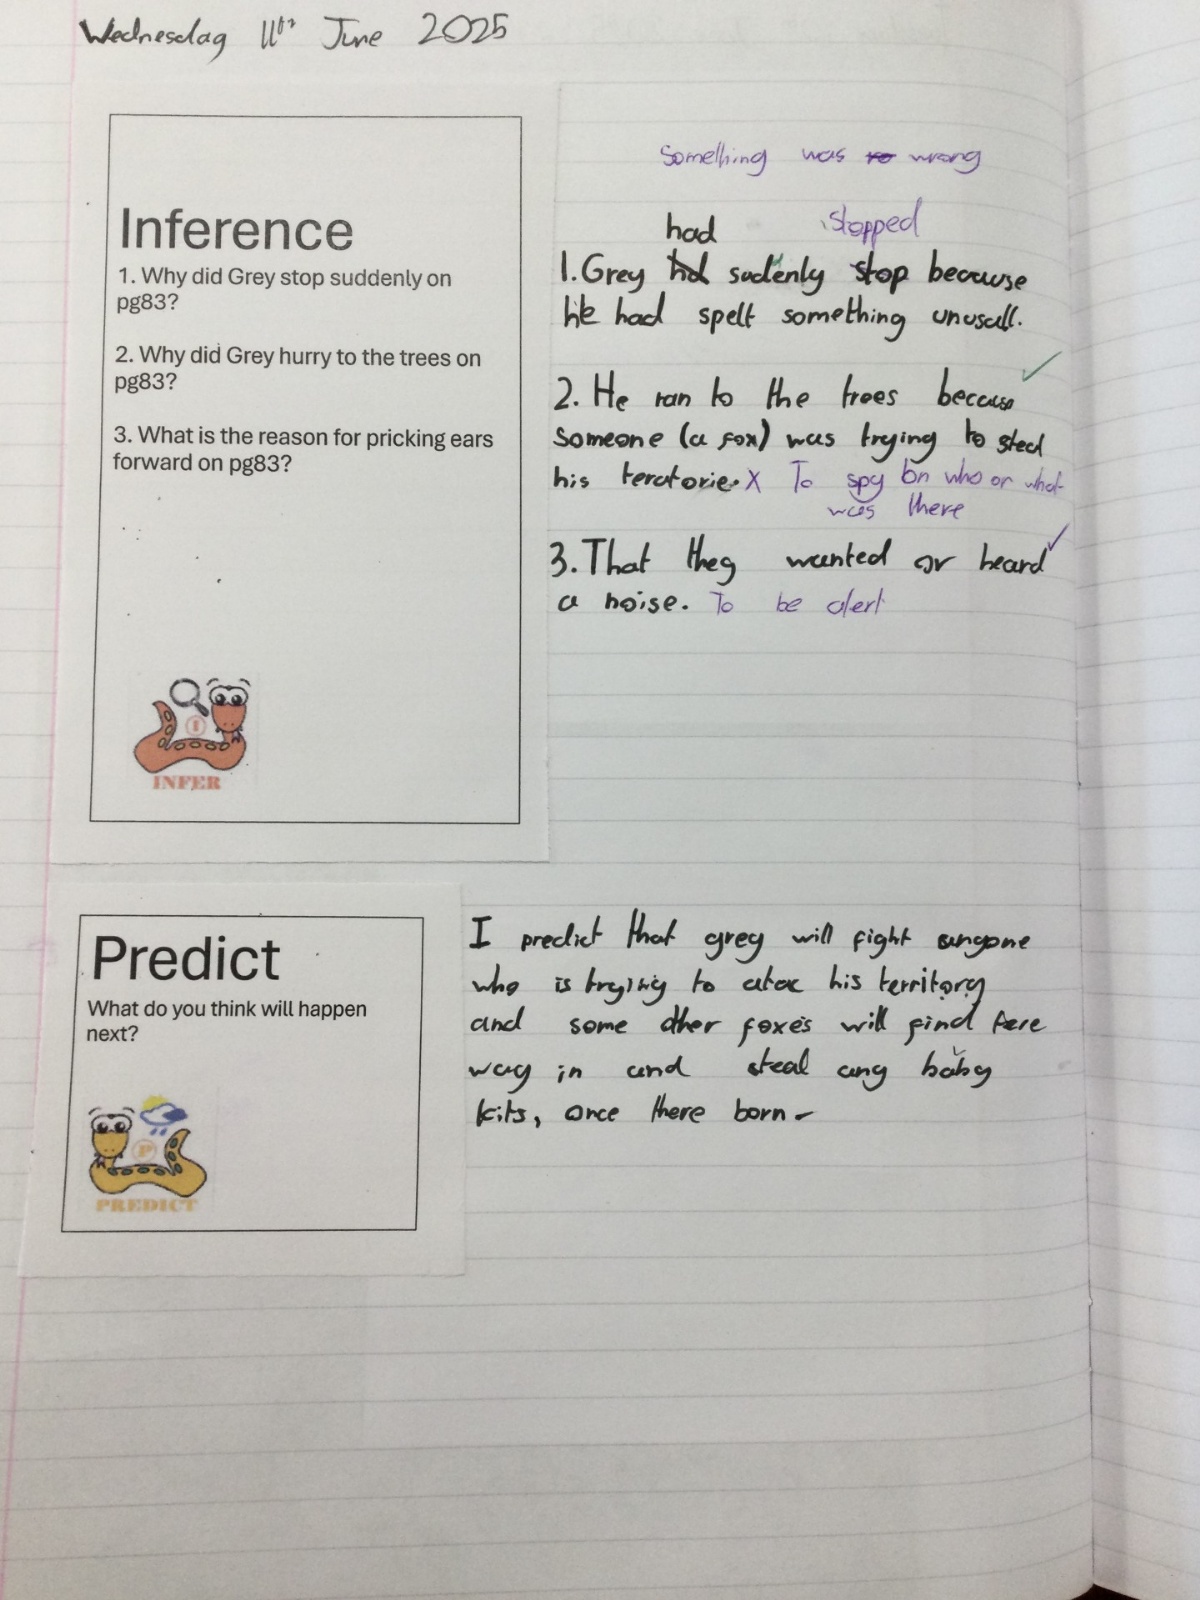 Wednesday 11th June 2025
Inference
1. Why did Grey stop suddenly on
pg83?
2. Why did Grey hurry to the trees on
pg83?
3. What is the reason for pricking ears
forward on pg83?
INFER
Something was wrong
had stopped
1. Grey hd sudenly stop because
he had spelt something unusall.
2. He ran to the trees because
someone (a fox) was trying to steal
his teratorie. X To spy on who or what
was there
3. That they wanted or heard
a noise. To be alert
Predict
What do you think will happen
next?
P
PREDICT
I predict that grey will fight anyone
who is trying to atac his territory
and some other foxes will find
way in and steal any baby
kits, once there born.